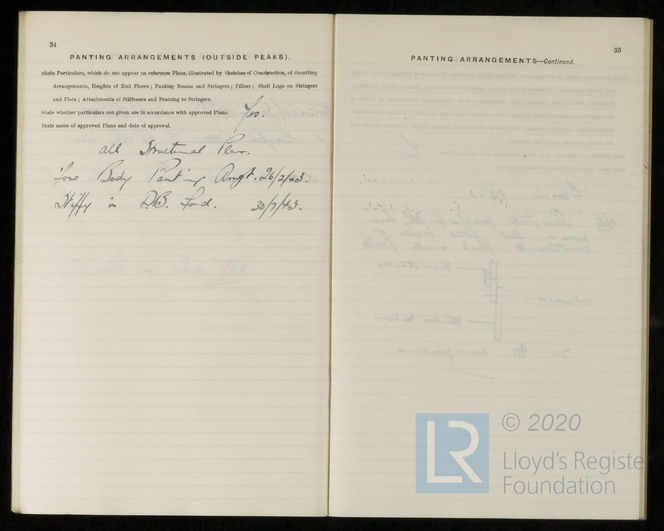 34
PANTING ARRANGEMENTS (OUTSIDE PEAKS).
State Particulars, which do not appear on reference Plans, illustrated by Sketches of Construction, of Scantling
Arrangements, Heights of End Floors; Panting Beams and Stringers; Pillars; Shell Lugs on Stringers
and Flats; Attachments of Stiffeners and Framing to Stringers.
State whether particulars not given are in accordance with approved Plans. Yes.
State name of approved Plans and date of approval.
all Structural Plan.
Fore Body Panting Arrgt. 26/2/43.
Stiffg in D.B. Ford. 30/7/43.
35
PANTING ARRANGEMENTS—Continued.
LR
© 2020
Lloyd's Register
Foundation